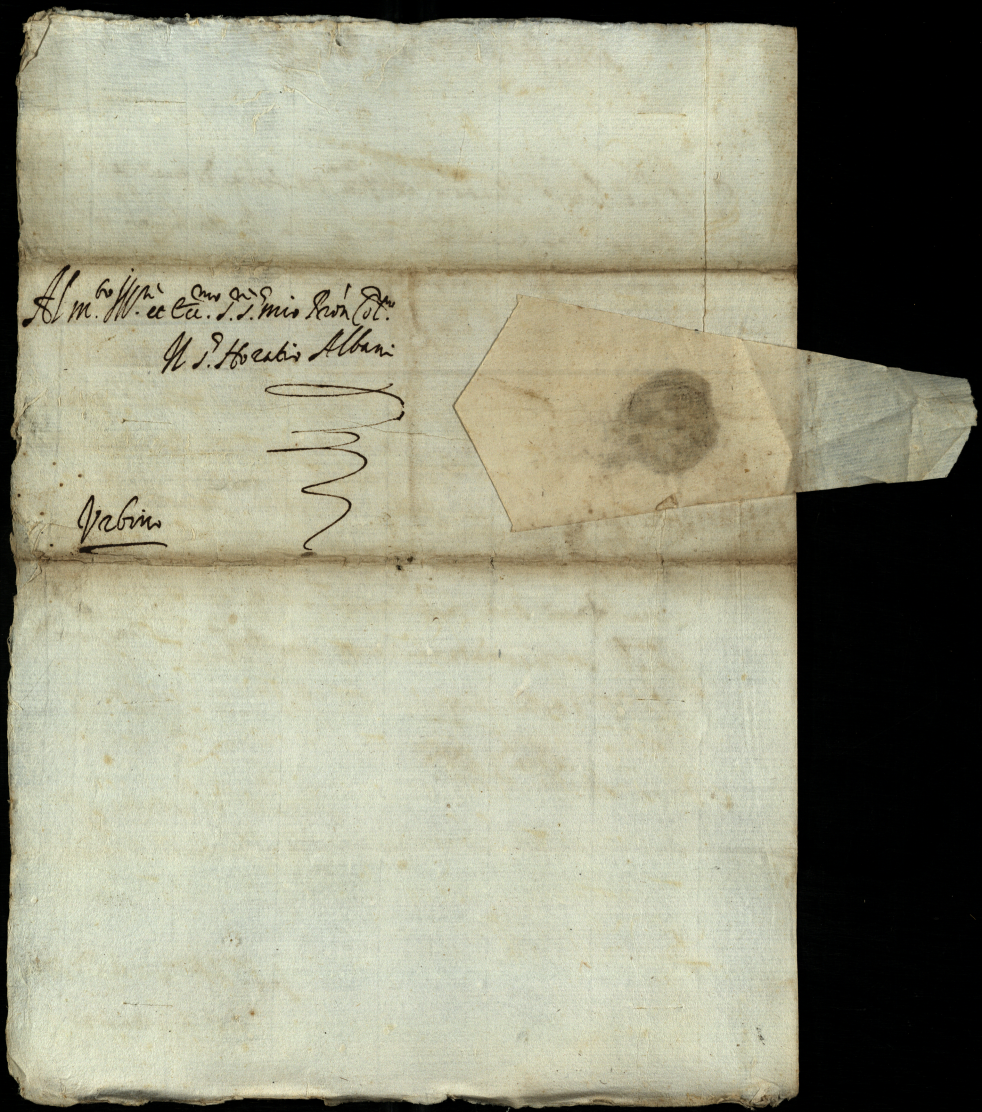 Al m.to Ill.re et Ecc.mo S.r S.r mio P.ron Col.mo
Il S.r Horatio Albani
Urbino